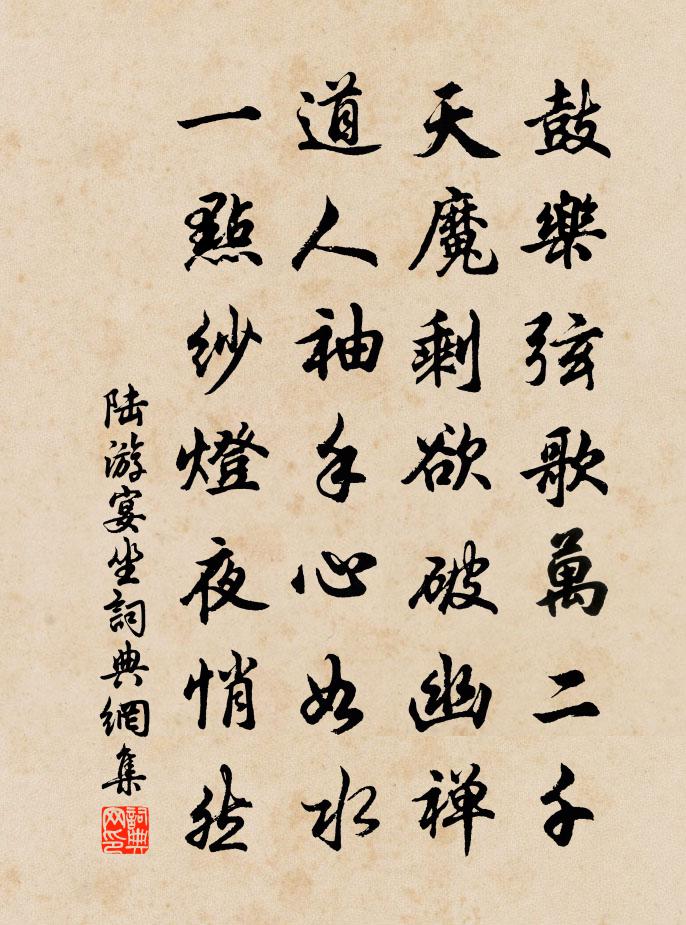 鼓樂弦歌萬二千
天魔剩欲破幽禅
道人袖手心如水
一點紗燈夜悄然
陆游宴坐詞典網集
詞典网印